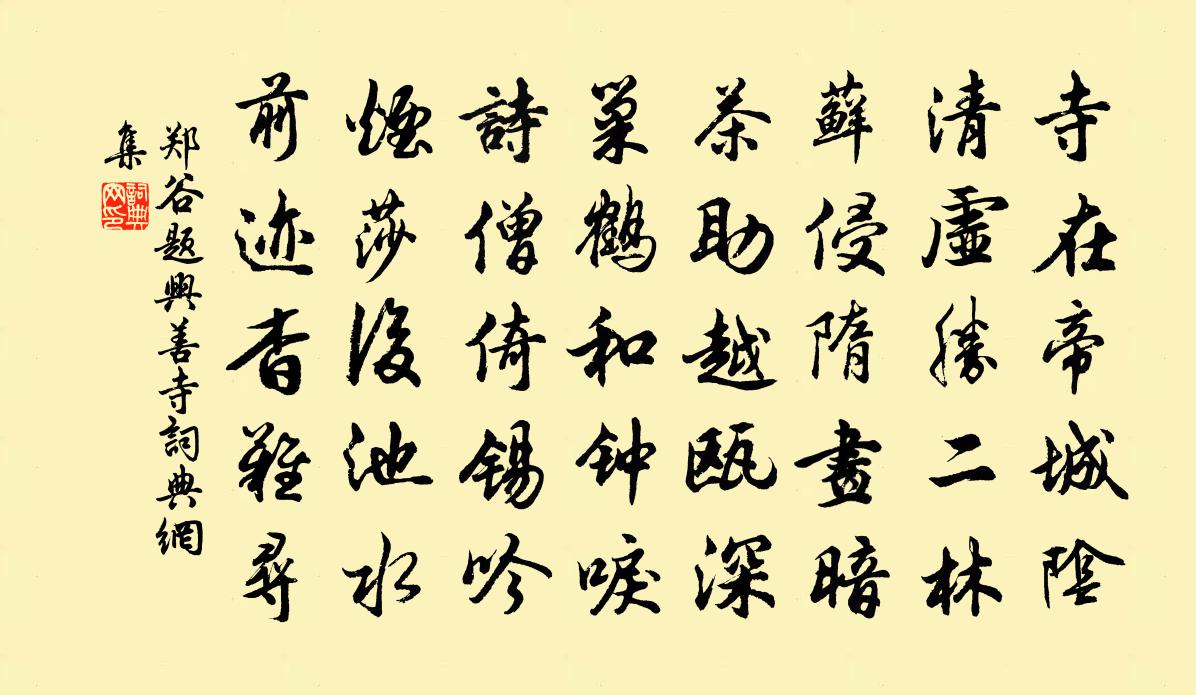 寺在帝城陰
清虛勝二林
蘚侵隋畫暗
茶助越甌深
巢鶴和钟唳
詩僧倚錫吟
煙莎後池水
前迹杳難尋
郑谷题興善寺詞典網
集
詞典网印